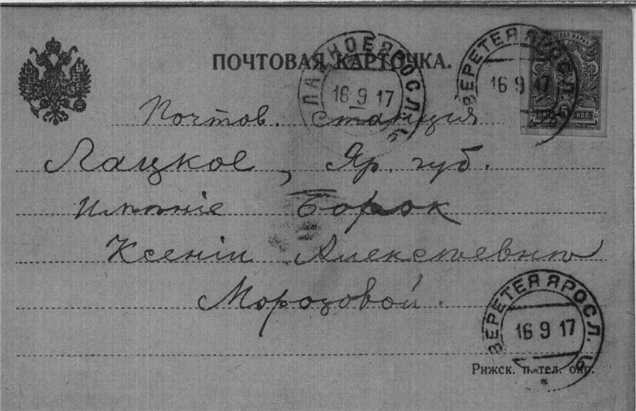 ПОЧТОВАЯ КАРТОЧКА.
ЯРОСЛ.
16 9 17
ВЕРЕТЕЯ ЯРОСЛ.
16 9 17
5 5
Почтов. станція
Лацкое, Яр. губ.
Имѣніе Борок
Ксеніи Алексѣевнѣ
Морозовой.
ВЕРЕТЕЯ ЯРОСЛ.
16 9 17
Рижск. п.-тел. окр.